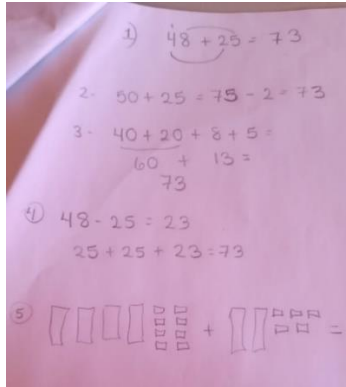 1) 48 + 25 = 73
2- 50 + 25 = 75 - 2 = 73
3- 40 + 20 + 8 + 5 =
60 + 13 =
73
4) 48 - 25 = 23
25 + 25 + 23 = 73
5) + =